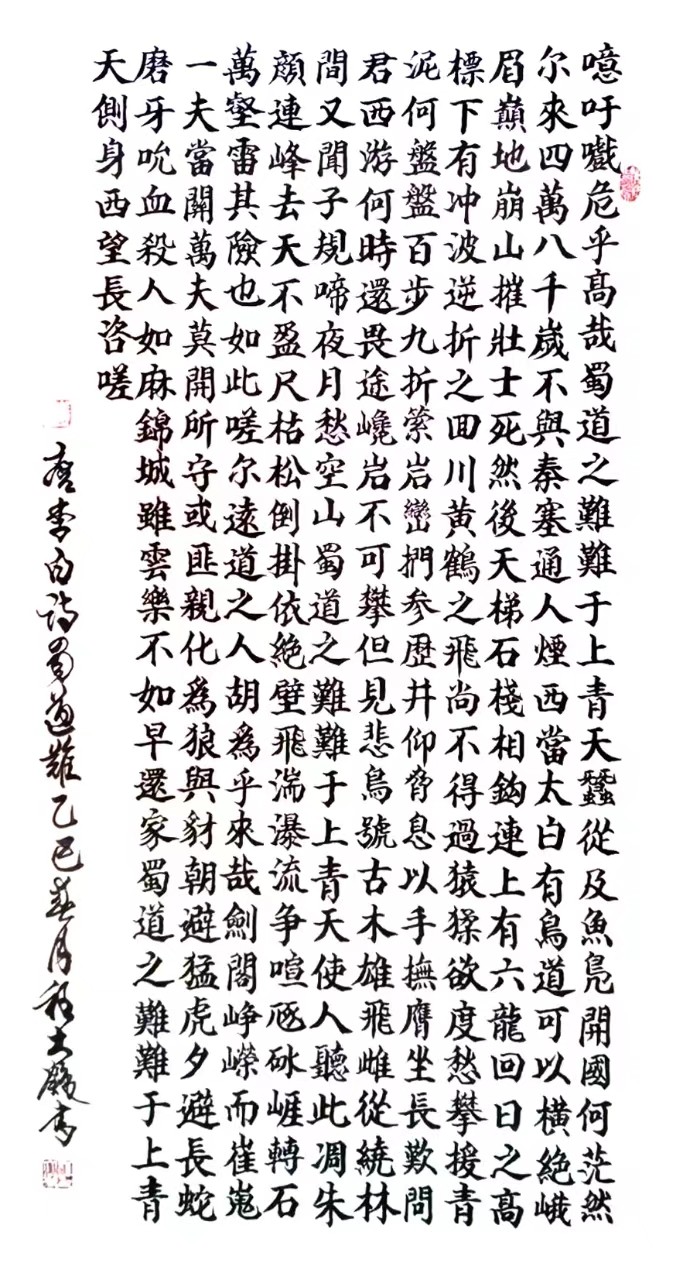 噫吁戲危乎髙哉蜀道之難難于上青天蠶從及魚鳧開國何茫然
尔來四萬八千嵗不與秦塞通人煙西當太白有鳥道可以橫絶峨
眉巔地崩山摧壯士死然後天梯石棧相鈎連上有六龍回日之髙
標下有冲波逆折之回川黄鶴之飛尚不得過猿猱欲度愁攀援青
泥何盤盤百步九折縈岩巒捫参歷井仰脅息以手撫膺坐長歎問
君西游何時還畏途巉岩不可攀但見悲鳥號古木雄飛雌從繞林
間又聞子規啼夜月愁空山蜀道之難難于上青天使人聽此凋朱
顔連峰去天不盈尺枯松倒掛依絶壁飛湍瀑流争喧豗砯崖轉石
萬壑雷其險也如此嗟尔遠道之人胡爲乎來哉劍閣崢嶸而崔嵬
一夫當關萬夫莫開所守或匪親化爲狼與豺朝避猛虎夕避長蛇
磨牙吮血殺人如麻錦城雖雲樂不如早還家蜀道之難難于上青
天側身西望長咨嗟
唐李白詩蜀道難乙巳春月程大書